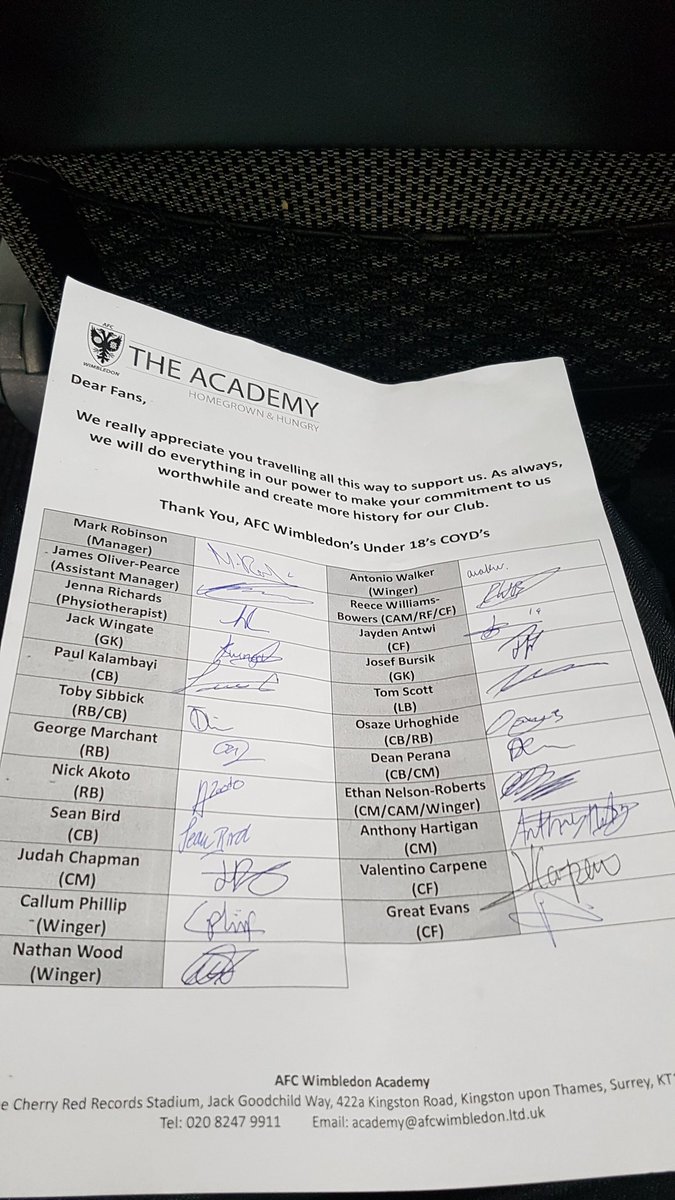 AFC
WIMBLEDON
THE ACADEMY
HOMEGROWN & HUNGRY
Dear Fans,
We really appreciate you travelling all this way to support us. As always,
we will do everything in our power to make your commitment to us
worthwhile and create more history for our Club.
Thank You, AFC Wimbledon's Under 18's COYD's
Mark Robinson
(Manager)
James Oliver-Pearce
(Assistant Manager)
Jenna Richards
(Physiotherapist)
Jack Wingate
(GK)
Paul Kalambayi
(CB)
Toby Sibbick
(RB/CB)
George Marchant
(RB)
Nick Akoto
(RB)
Sean Bird
(CB)
Sean Bird
Judah Chapman
(CM)
Callum Phillip
(Winger)
Nathan Wood
(Winger)
Antonio Walker
(Winger)
Reece Williams-
Bowers (CAM/RF/CF)
Jayden Antwi
(CF)
Josef Bursik
(GK)
Tom Scott
(LB)
Osaze Urhoghide
(CB/RB)
Dean Perana
(CB/CM)
Ethan Nelson-Roberts
(CM/CAM/Winger)
Anthony Hartigan
(CM)
Valentino Carpene
(CF)
Great Evans
(CF)
AFC Wimbledon Academy
e Cherry Red Records Stadium, Jack Goodchild Way, 422a Kingston Road, Kingston upon Thames, Surrey, KT1
Tel: 020 8247 9911 Email: academy@afcwimbledon.ltd.uk